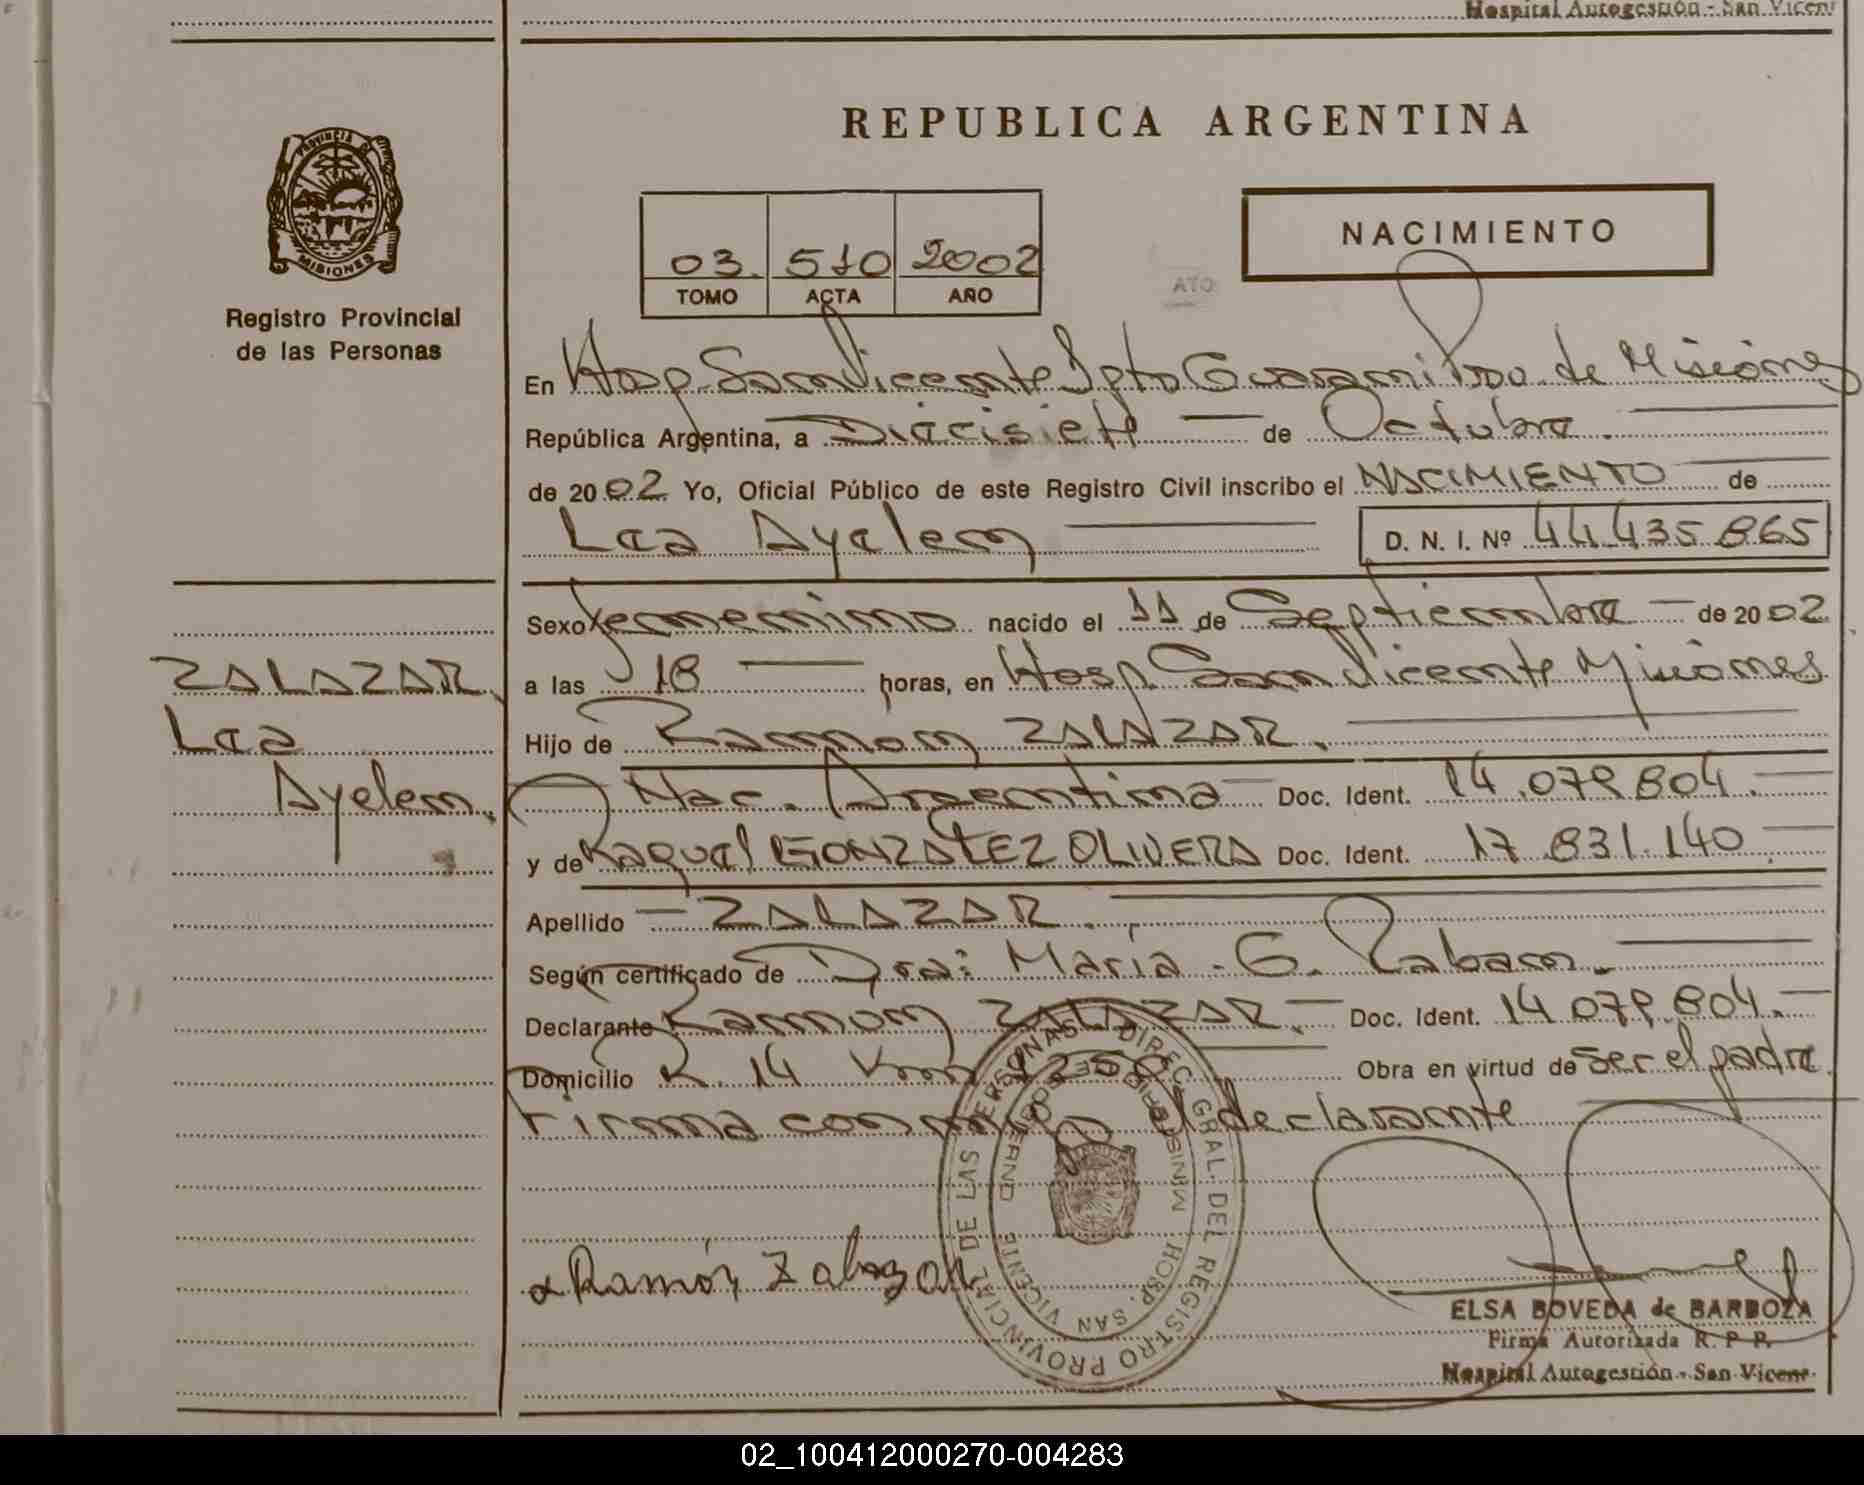 Hospital Autogestión - San Vicent
PROVINCIA DE
MISIONES
Registro Provincial
de las Personas
REPUBLICA ARGENTINA
03. 510 2002
TOMO ACTA AÑO
NACIMIENTO
En Hosp. San Vicente Dpto Guaraní Pro. de Misiones
República Argentina, a Diecisiete — de Octubre.
de 2002 Yo, Oficial Público de este Registro Civil inscribo el NACIMIENTO de
Lea Ayelen
D. N. I. Nº 44.435.865
Sexo femenino nacido el 11 de Septiembre — de 2002
a las 18 — horas, en Hosp. San Vicente Misiones
Hijo de Ramon ZALAZAR.
Nac. Argentina — Doc. Ident. 14.079.804.
y de Raquel GONZALEZ OLIVERA Doc. Ident. 17.831.140
Apellido — ZALAZAR.
Según certificado de Dra: María G. Raban.
Declarante Ramon ZALAZAR. — Doc. Ident. 14.079.804.
Domicilio R. 14 Km 1250 Obra en virtud de Ser el padre
Firma conmigo el declarante
ZALAZAR
Lea
Ayelen.
Ramón Zalazar
DIREC. GRAL. DEL REGISTRO PROVINCIAL DE LAS PERSONAS
HOSP. SAN VICENTE
ELSA BOVEDA de BARBOZA
Firma Autorizada R. P. P.
Hospital Autogestión - San Vicent
02_100412000270-004283